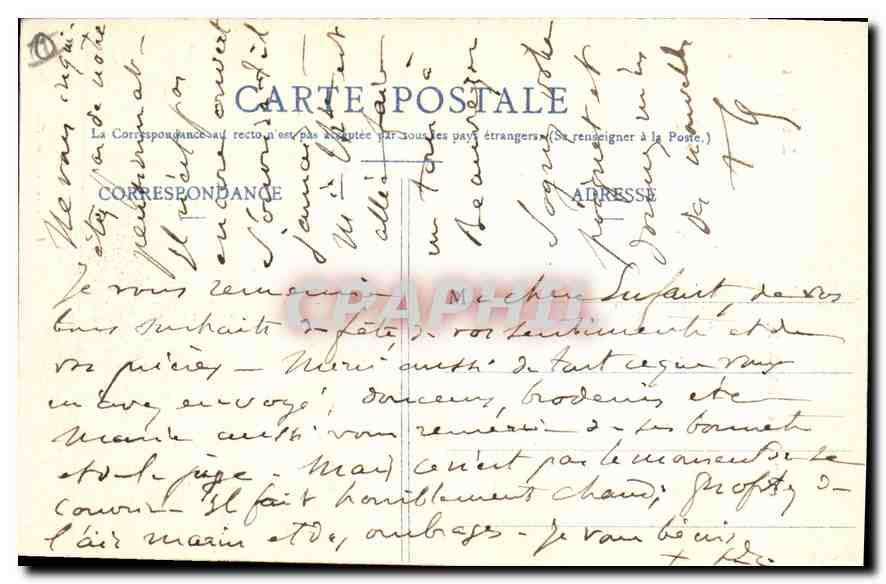 CARTE POSTALE
La Correspondance au recto n'est pas acceptée par tous les pays étrangers. (Se renseigner à la Poste.)
CORRESPONDANCE
ADRESSE
Je vous remercie Ma chère Enfant, de vos
bons souhaits de fête, de vos sentiments et de
vos prières — Merci aussi de tout ce que vous
m'avez envoyé, douceurs, broderies etc
Marie aussi vous remercie de ses bonnets
et de la . Mais ce n'est pas le moment de se
couvrir — Il fait horriblement chaud, profitez de
l'air marin et des ombrages — Je vous bénis
Ne vous inqui-
étez pas de notre
pensionnat —
Il n'est pas
encore ouvert
S'ouvrira-t-il
jamais —
est
allée faire
un tour à
Beauvezer
Soignez votre
poignet et
donnez m'en
des nouvelles
CPAPHIL